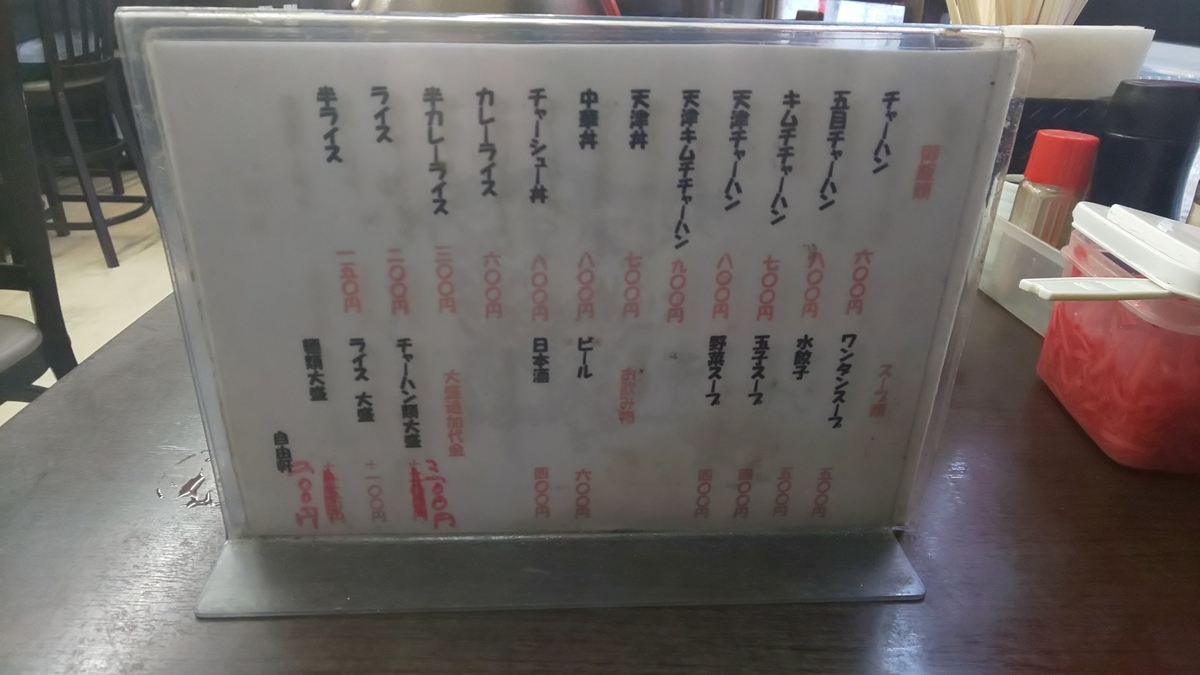 御飯類
チャーハン 六〇〇円
五目チャーハン 八〇〇円
キムチチャーハン 七〇〇円
天津チャーハン 八〇〇円
天津キムチチャーハン 九〇〇円
天津丼 七〇〇円
中華丼 八〇〇円
チャーシュー丼 八〇〇円
カレーライス 六〇〇円
半カレーライス 三〇〇円
ライス 二〇〇円
半ライス 一五〇円
スープ類
ワンタンスープ 五〇〇円
水餃子 五〇〇円
玉子スープ 四〇〇円
野菜スープ 四〇〇円
お飲み物
ビール 六〇〇円
日本酒 四〇〇円
大盛追加代金
チャーハン類大盛 200円
ライス 大盛 +一〇〇円
麺類大盛 200円
自由軒